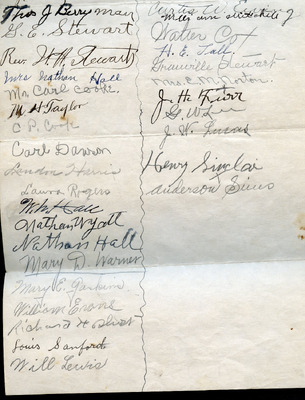 Thos J Berryman
G. E. Stewart
Rev. H. M. Stewart
Mrs Nathan Hall
Mr Carl Cooke
M. H. Taylor
C P. Cook
Carl Dawson
London Harris
Laura Rogers
Wm Hall
Nathan Wyatt
Nathan Hall
Mary D. Warner
Mary E.
William
Richard H
Louis Sanford
Will Lewis
Walter Cox
H. E. Tall.
Granville Stewart
Mrs. E. M. Norton.
J. H.
G. W.
J. H. Lucas
Henry Sinclair
Anderson Sims